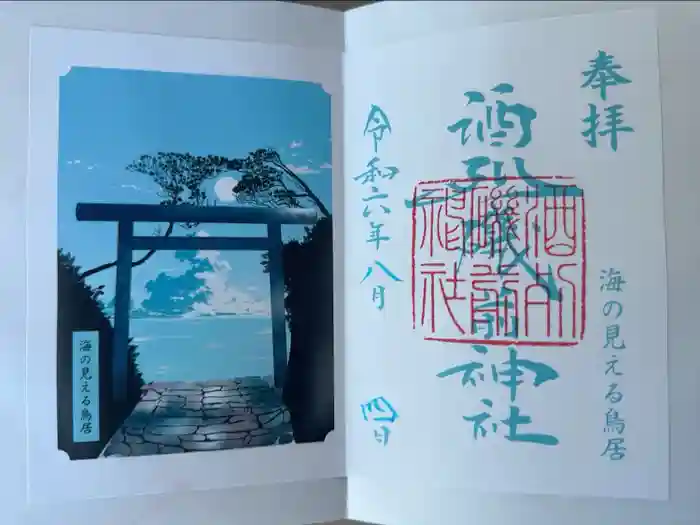 海の見える鳥居
奉拝
酒列磯前神社
酒列磯前神社
海の見える鳥居
令和六年八月四日